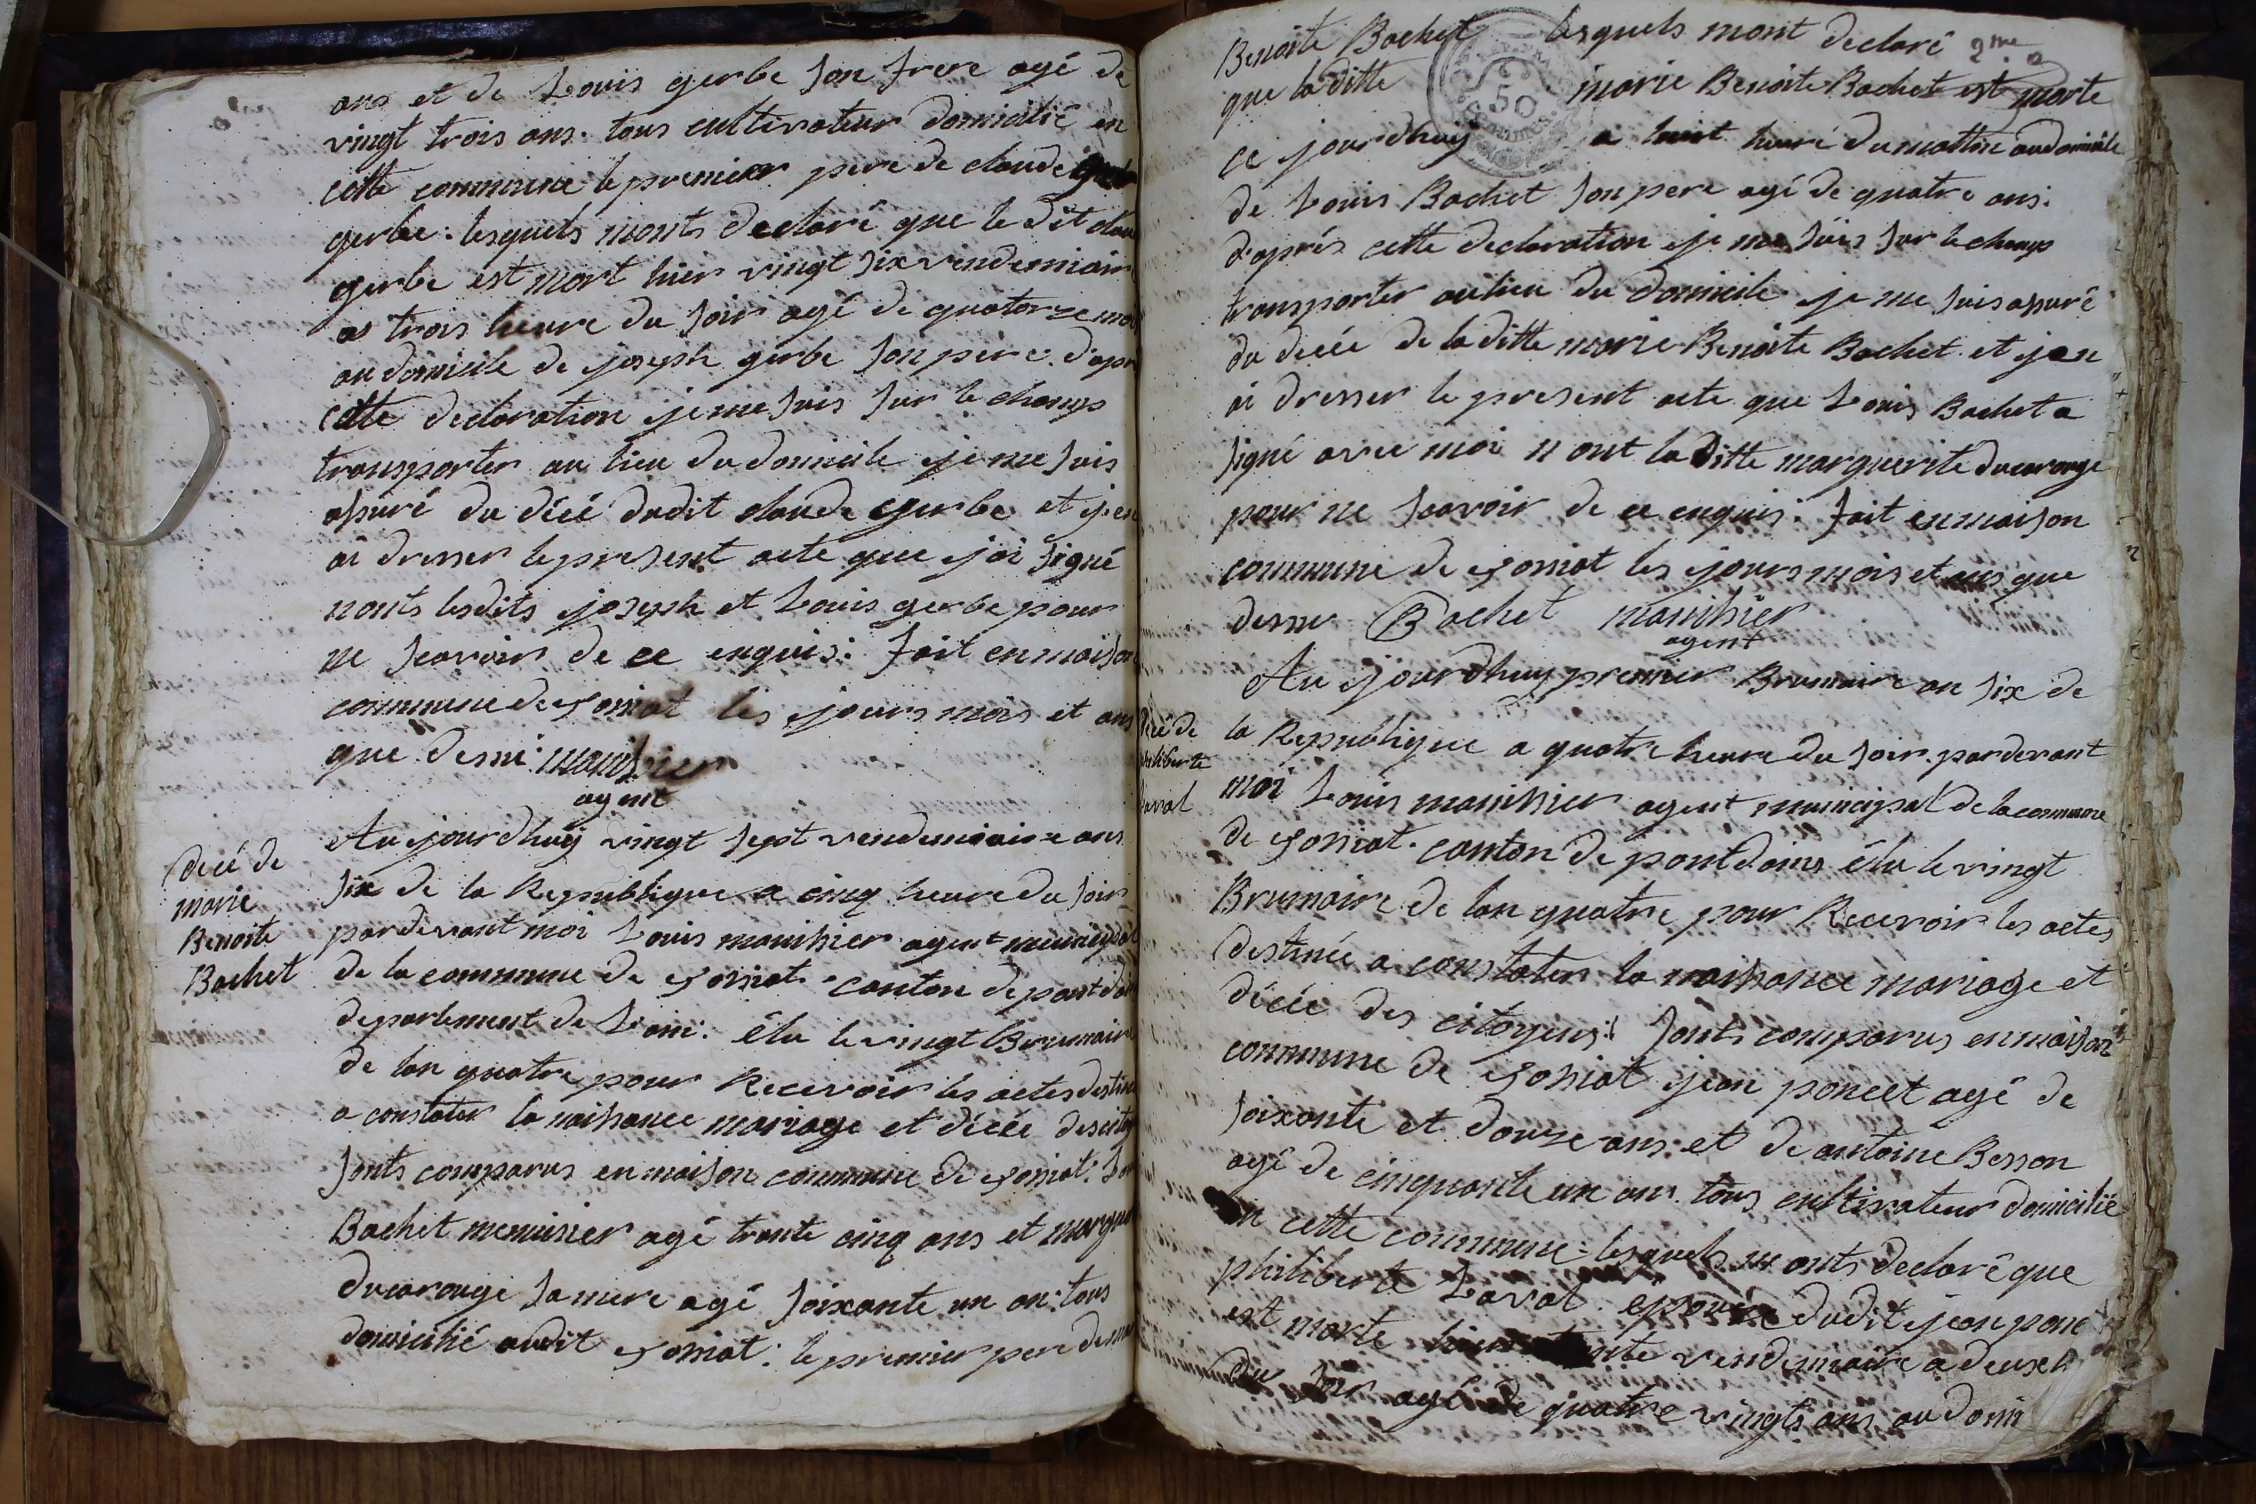 ans et de Louis gerbe son frere agé de
vingt trois ans. tous cultivateur domicilié en
cette commune le premier pere de claude
gerbe. lesquels monts declaré que le dit clau
gerbe est mort hier vingt six vendemiair
as trois heure du soir agé de quatorze moi
au domicile de joseph gerbe son pere. d'apr
cette declaration je me suis sur le champs
transporter au lieu du domicile je me suis
assuré du décé dudit claude gerbe et jen
ai dresser le present acte que jai signé
nonts lesdits joseph et Louis gerbe pour
ne scavoir de ce enquis. fait en maison
commune de les jours mois et ans
que dessu. manihier
agent
decé de
marie
Benoite
Bachet
Au jourdhuy vingt sept vendemiaire ans
six de la Republique a cinq heure du soir
pardevant moi Louis manihier agent municipal
de la commune de canton de pont dai
departement de Lain. élu le vingt Brumaire
de lan quatre pour Recevoir les actes destiné
a constater la naissance mariage et décée des citoy
sonts comparus en maison commune de Lou
Bachet menuisier agé trente cinq ans et margue
ducarouge sa mere agé soixante un an. tous
domicilié audit le premier pere de mar
Benoite Bachet lesquels mont declaré 2me
que laditte marie Benoite Bachet est morte
50
ce jourdhuy a huit heure du mattin au domicile
de Louis Bachet son pere agé de quatre ans.
d'aprés cette declaration je me suis sur le champs
transporter au lieu du domicile je me suis assuré
du décée de laditte marie Benoite Bachet et jen
ai dresser le present acte que Louis Bachet a
signé avec moi n ont laditte marguerite ducarouge
pour ne scavoir de ce enquis. fait en maison
commune de les jours mois et ans que
dessu Bachet manihier
agent
decé de
philiberte
Laval
Au jourdhuy premier Brumaire an six de
la Republique a quatre heure du soir. pardevant
moi Louis manihier agent municipal de la commune
de canton de pont dains élu le vingt
Brumaire de lan quatre pour Recevoir les actes
destinée a constater la naissance mariage et
décée des citoyens. sonts comparus en maison
commune de jean poncet agé de
soixante et douze ans. et de antoine Besson
agé de cinquante un ans. tous cultivateur domicilié
en cette commune. lesquels m onts declaré que
philiberte Laval epouse dudit jean ponc
est morte hier trente vendemiaire a deux h
du soir agé de quatre vingts ans au domi